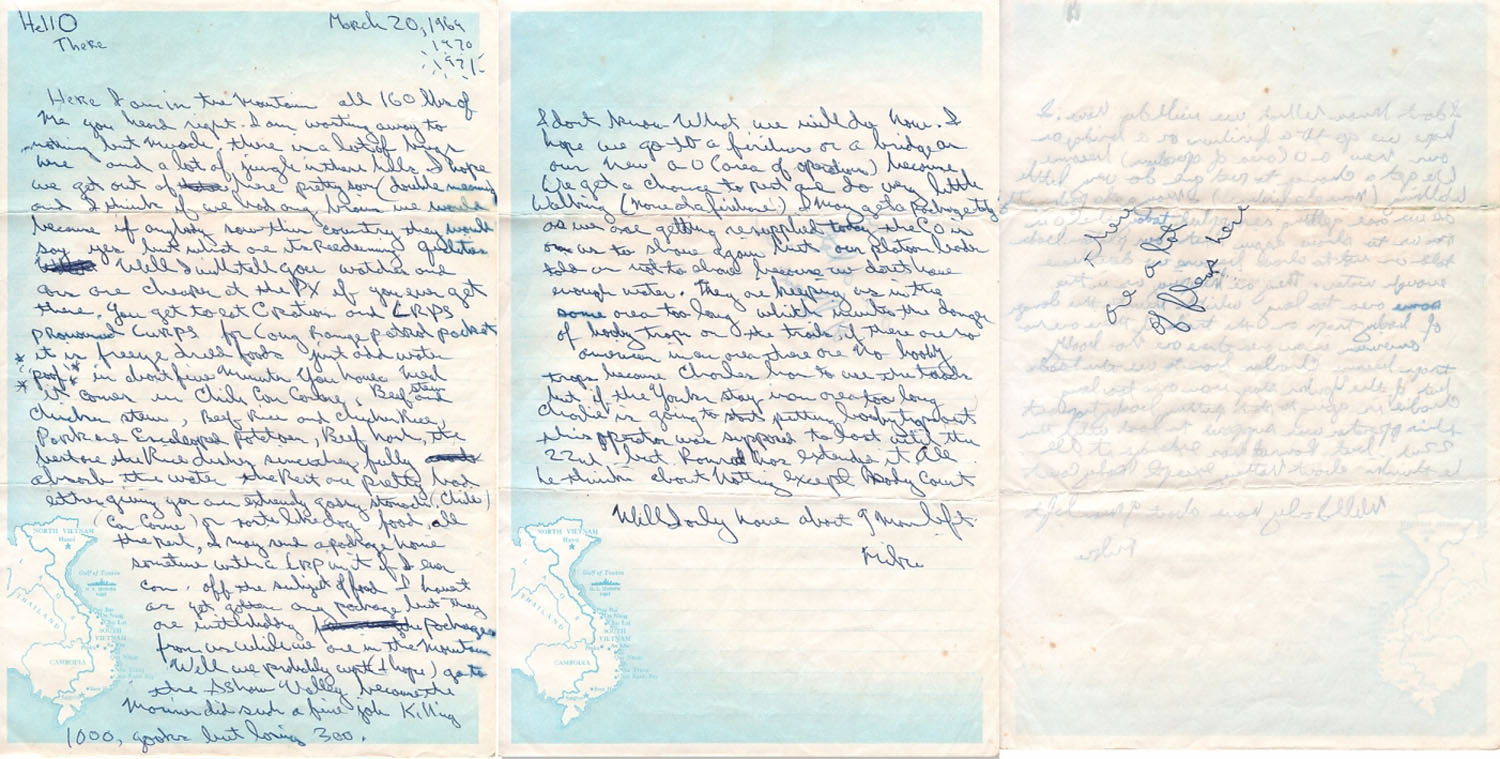 Hello There
March 20, 1969
1970
1971
Here I am in the Mountain all 160 lbs of
Me you heard right. I am wasting away to
nothing but Muscle. there is a lot of hills
here and a lot of jungle in these hills. I hope
we get out of here pretty soon (double meaning)
and I think if we had any brains we would
because if anybody saw this country they would
say yes, but what are its Redeeming qualities
Well I will tell you watches and
are cheaper at the PX if you ever get
there. You get to eat Cration and LRPS
pronounced Lurps for Long Range patrol packet
it is freeze dried foods just add water
* poof * in about five Minutes You have Med
* it comes in Chile Con Carne, Beef stew and
chicken stew, Beef Rice and Chicken Rice,
Pork and Escaloped Potatoes, Beef hash, the
best are the Rice dishes since they fully
absorb the water the Rest are pretty bad
either giving you an extremely gassy stomach (Chile)
(Con Carne) or taste like dog food, all
the rest, I may send a package home
sometime with a LRP unit if I ever
can. off the subject of food I havent
as yet gotten any package but they
are withholding the packages
from us while we are in the Mountain
Well we probably wont (I hope) go to
the Ashau Valley because the
Marines did such a fine job Killing
1000, gooks but losing 300.
NORTH VIETNAM
Hanoi
Gulf of Tonkin
THAILAND
SOUTH VIETNAM
CAMBODIA
I dont know What we will do Now. I
hope we go to a firebase or a bridge on
our new a O (area of operations) because
We get a chance to rest and do very little
Walking (None at a firebase!) I may get a Package today
as we are getting resupplied today the CO is
on us to shave again but our platoon leader
told us not to shave because we dont have
enough water. They are keeping us in the
same area too long which invites the danger
of booby traps on the trails if there are no
american in an area there are No booby
traps because Charles has to use the trails
but if the Yanks stay in an area too long
Charlie is going to start putting booby traps out
this operation was supposed to last until the
22nd but has extended it All
he thinks about Nothing except Body Count
Will I only have about 9 Mon left
Mike
NORTH VIETNAM
Hanoi
Gulf of Tonkin
THAILAND
SOUTH VIETNAM
CAMBODIA
There
are a lot
of Bugs here